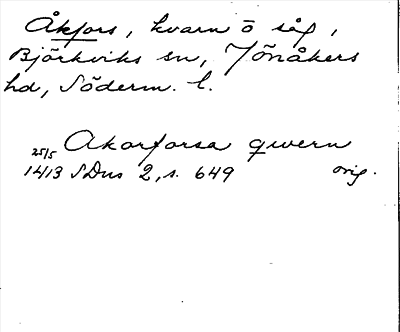 Åkfors, kvarn o såg,
Björkviks sn, Jönåkers
hd, Söderm. l.
Akorforsa qwern
25/5
1413 SDns 2, s. 649 orig.